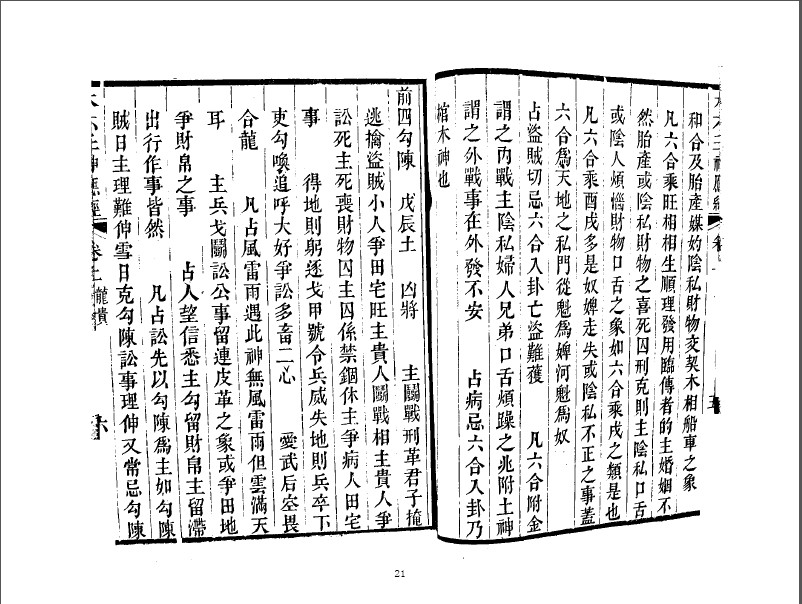 和合及胎產媒妁陰私財物交契木相船車之象
凡六合乘旺相相生順理發用臨傳者的主婚姻不
然胎產或陰私財物之喜死囚刑克則主陰私口舌
或陰人煩惱財物口舌之象如六合乘戌之類是也
凡六合乘酉戌多是奴婢走失或陰私不正之事葢
六合爲天地之私門從魁爲婢河魁爲奴
占盜賊切忌六合入卦亡盜難獲 凡六合附金
謂之內戰主陰私婦人兄弟口舌煩躁之兆附土神
謂之外戰事在外發不安 占病忌六合入卦乃
棺木神也
前四勾陳 戊辰土 凶將 主鬭戰刑革君子掩
逃擒盜賊小人爭田宅旺主貴人鬭戰相主貴人爭
訟死主死喪財物囚主囚係禁錮休主爭病人田宅
事 得地則躬逐戈甲號令兵威失地則兵卒下
吏勾喚追呼大好爭訟多畜二心 愛武后空畏
合龍 凡占風雷雨遇此神無風雷雨但雲滿天
耳 主兵戈鬭訟公事留連皮革之象或爭田地
爭財帛之事 占人望信悉主勾留財帛主留滯
出行作事皆然 凡占訟先以勾陳爲主如勾陳
賊日主理難伸雪日克勾陳訟事理伸又常忌勾陳
壬神應經 卷上
六
21